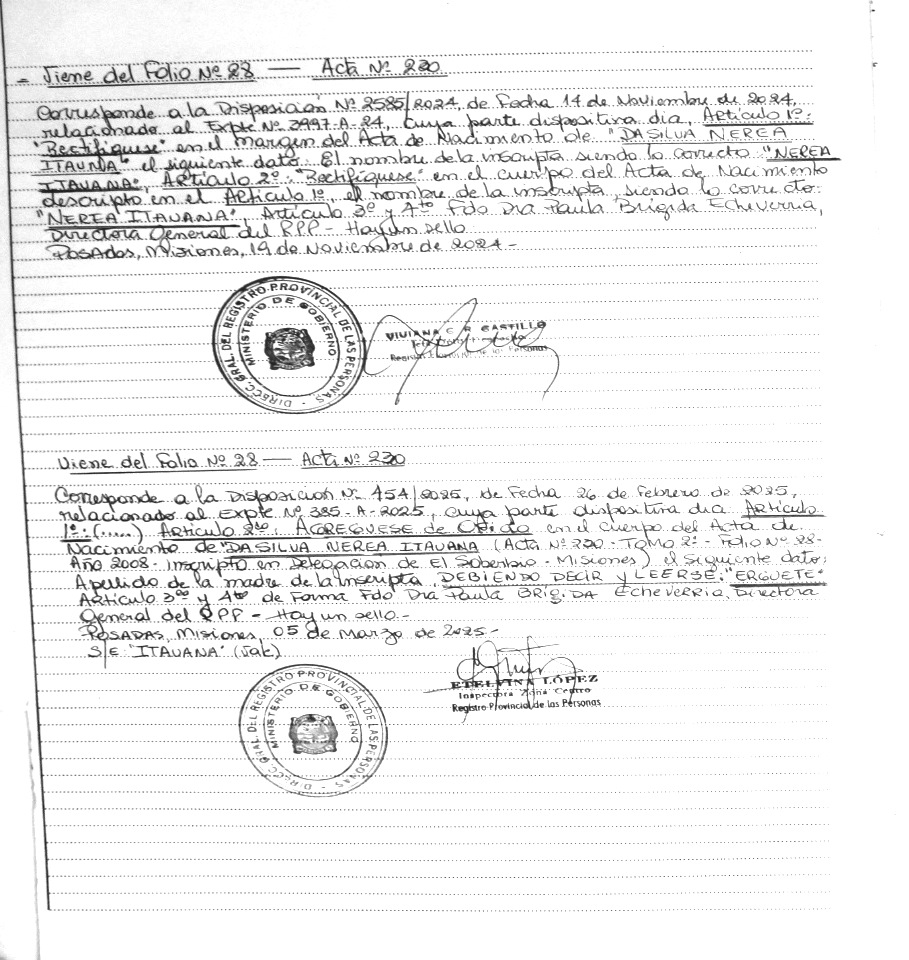 = Viene del Folio Nº 28 — Acta Nº 220
Corresponde a la Disposición Nº 2585/2024, de Fecha 14 de Noviembre de 2024,
relacionado al Expte Nº 3997-A-24, cuya parte dispositiva dia, Articulo 1º:
"Rectifíquese" en el margen del Acta de Nacimiento de "DA SILVA NEREA
ITAUNA" el siguiente dato: El nombre de la inscripta siendo lo correcto "NEREA
ITAUANA", Articulo 2º: "Rectifíquese" en el cuerpo del Acta de Nacimiento
descripto en el Articulo 1º, el nombre de la inscripta, siendo lo correcto:
"NEREA ITAUANA", Articulo 3º y 4to Fdo Dra Paula Brigida Echeverria,
Directora General del RPP - Hay un sello
Posadas, Misiones, 19 de Noviembre de 2024 -
DIRECC. GRAL. DEL REGISTRO PROVINCIAL DE LAS PERSONAS
MINISTERIO DE GOBIERNO
VIVIANA E. R. CASTILLO
de las Personas
Viene del Folio Nº 28 — Acta Nº 220
Corresponde a la Disposición Nº 454/2025, de Fecha 26 de Febrero de 2025,
relacionado al Expte Nº 385-A-2025, cuya parte dispositiva dia Articulo
1º: (.....) Articulo 2do: AGREGUESE de Oficio en el cuerpo del Acta de
Nacimiento de "DA SILVA NEREA ITAUANA (Acta Nº 220 - Tomo 2º - Folio Nº 28-
Año 2008 - Inscripto en Delegacion de El Soberbio - Misiones) el siguiente dato:
Apellido de la madre de la inscripta, DEBIENDO DECIR y LEERSE: "ERGUETE"
Articulo 3ro y 4to de Forma Fdo Dra Paula BRIGIDA Echeverria, Directora
General del RPP - Hay un sello -
POSADAS, Misiones, 05 de Marzo de 2025 -
S/E "ITAUANA" (Vale)
DIRECC. GRAL. DEL REGISTRO PROVINCIAL DE LAS PERSONAS
MINISTERIO DE GOBIERNO
ETELVINA LÓPEZ
Inspectora Zona Centro
Registro Provincial de las Personas